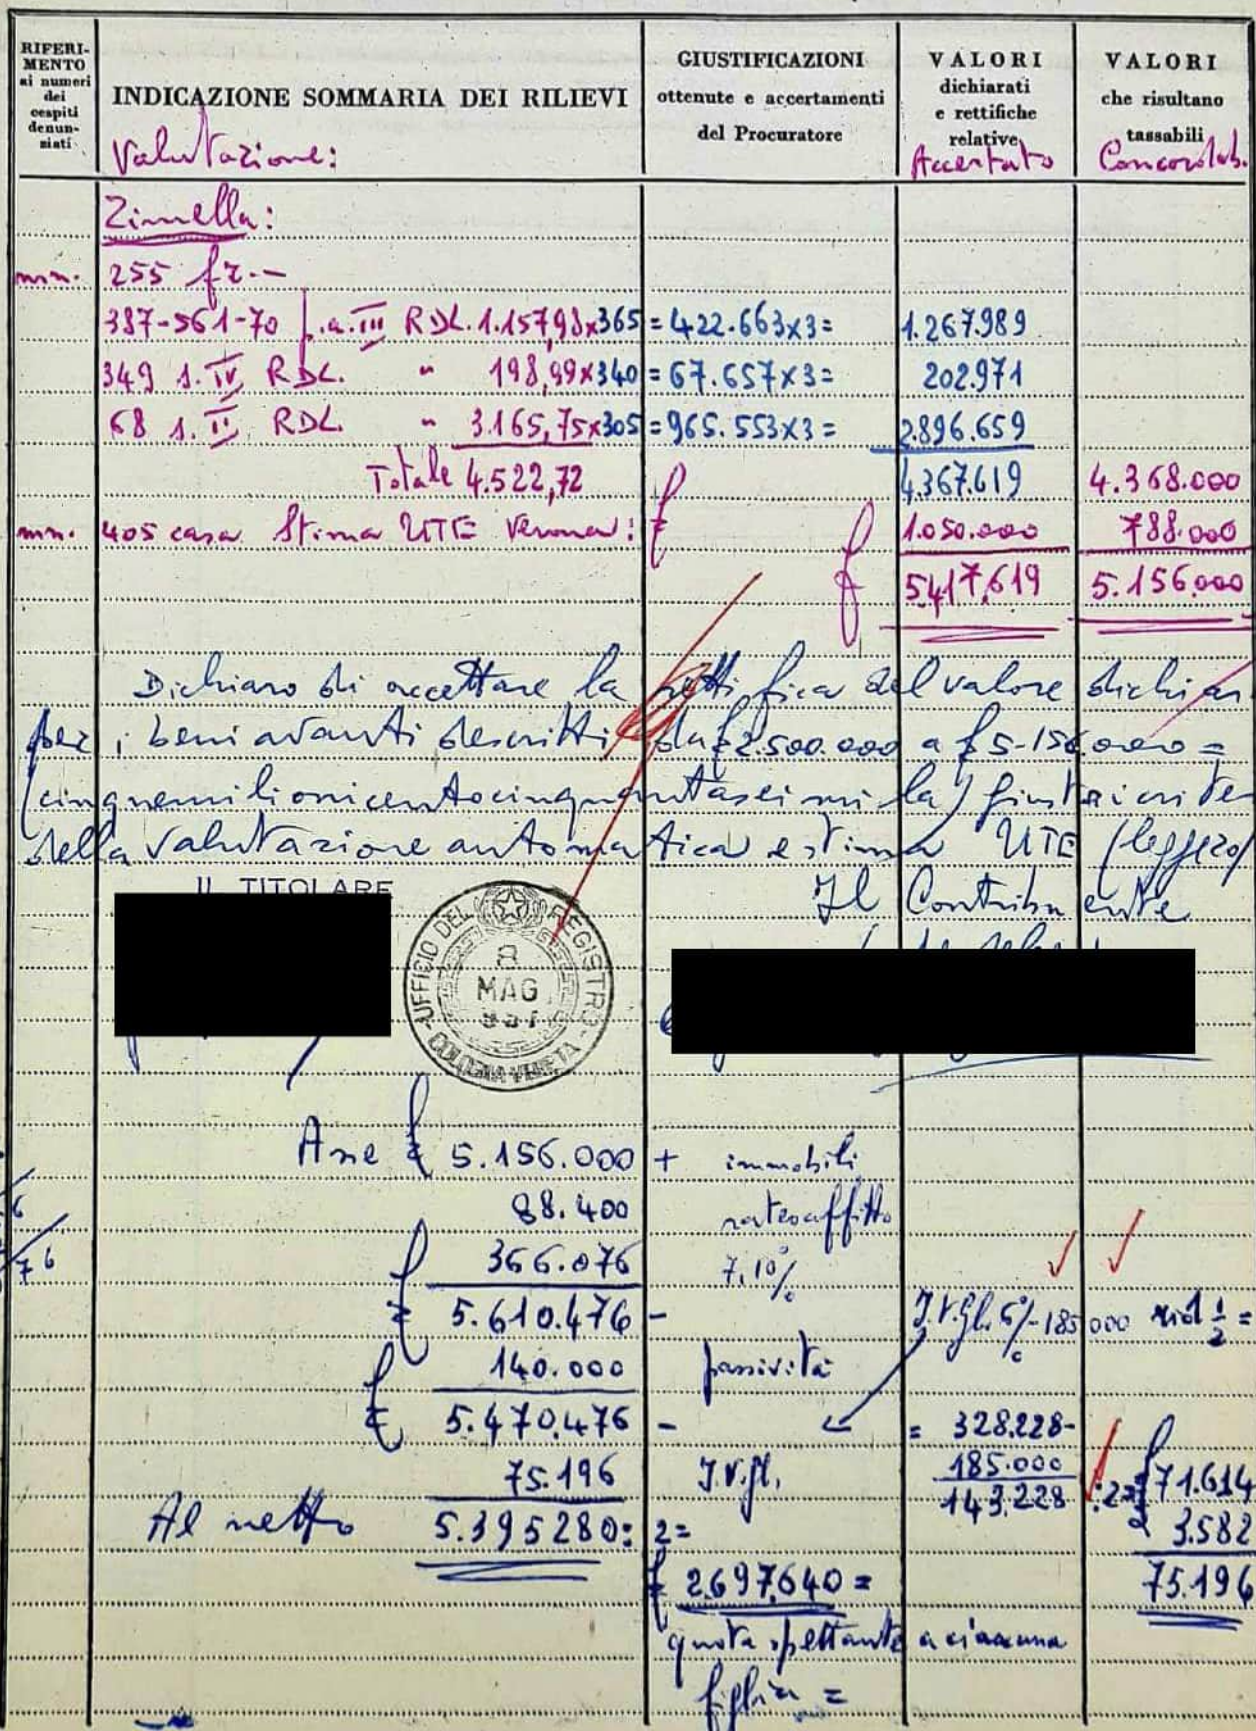 RIFERI-
MENTO
ai numeri
dei
cespiti
denun-
ziati
INDICAZIONE SOMMARIA DEI RILIEVI
Valutazione:
GIUSTIFICAZIONI
ottenute e accertamenti
del Procuratore
VALORI
dichiarati
e rettifiche
relative
Accertato
VALORI
che risultano
tassabili
Concordat.
Zimella:
mn. 255 fr.-
387-561-70 s.a. III RDL. 1.157,98x365 =422.663x3= 1.267.989
349 s. IV RDL. " 198,99x340 =67.657x3= 202.971
68 s. II RDL. " 3.165,75x305 =965.553x3= 2.896.659
Totale 4.522,72 £ 4.367.619 4.368.000
mn. 405 casa Stima UTE Verona: £ 1.050.000 788.000
£ 5.417.619 5.156.000
Dichiaro di accettare la rettifica del valore dichiar
per i beni avanti descritti da £ 2.500.000 a £ 5.156.000=
(cinquemilionicentocinquantaseimila) giusta i criteri
della valutazione automatica e stima UTE (leggero)
IL TITOLARE
Il Contribuente
UFFICIO DEL REGISTRO
8
MAG
957
COLOGNA VENETA
Asse £ 5.156.000 + immobili
88.400 rateo affitto
£ 366.076 7,10%
£ 5.610.476 - I.V.Gl. 6%-185000 rid 1/2 =
140.000 passività
£ 5.470.476 - = 328.228-
75.196 I.V.gl. 185.000
143.228 :2= £ 71.614
Al netto 5.395280: 2= 3.582
£ 2.697.640 = 75.196
quota spettante a ciascuna
figlia =
6
76